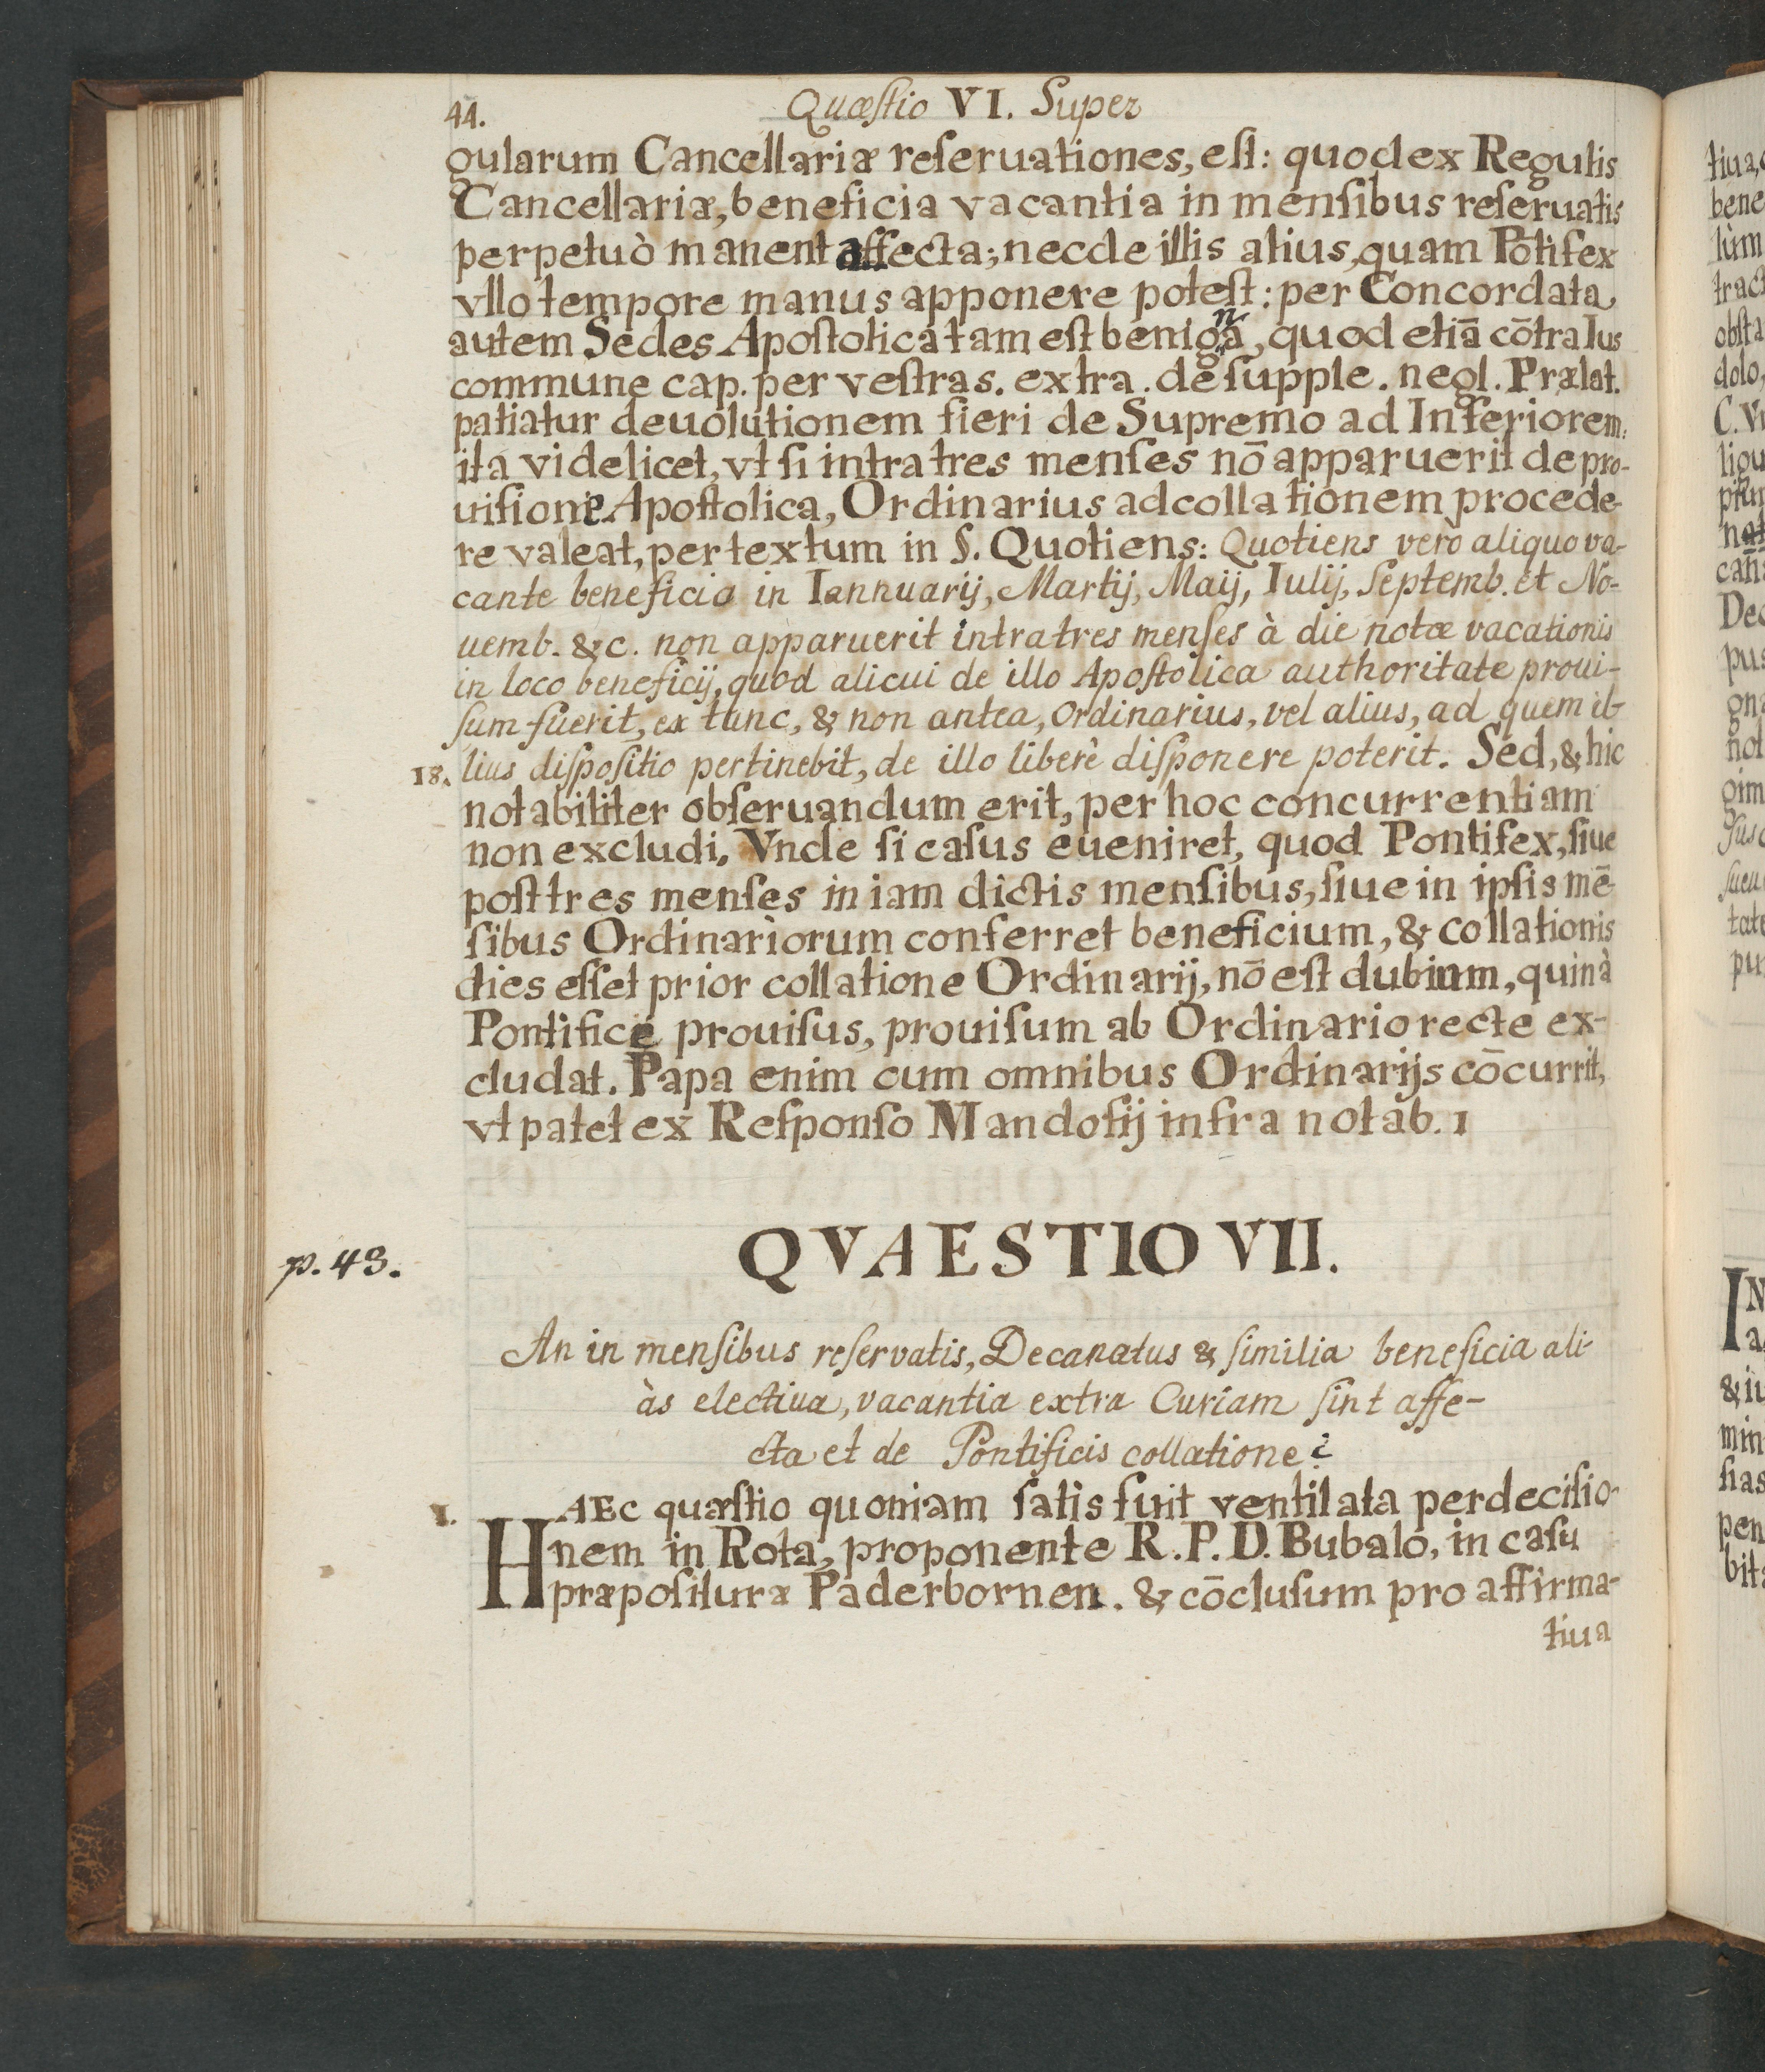 44. Quæſtio VI. Super
gularum Cancellariæ reſeruationes, eſt: quod ex Regulis
Cancellariæ, beneficia vacantia in menſibus reſeruatis
perpetuò manent affecta; nec de illis alius, quam Pōtifex
vllo tempore manus apponere poteſt: per Concordata
autem Sedes Apoſtolica tam eſt benigna, quod etiā cōtra Ius
commune cap. per veſtras. extra. de ſupple. negl. Prælat.
patiatur deuolutionem fieri de Supremo ad Inferiorem:
ita videlicet, vt ſi intra tres menſes nō apparuerit de pro-
uiſione Apoſtolica, Ordinarius ad collationem procede-
re valeat, per textum in §. Quotiens: Quotiens vero aliquo va-
cante beneficio in Iannuarij, Martij, Maij, Iulij, Septemb. et No-
uemb. &c. non apparuerit intra tres menſes à die notæ vacationis
in loco beneficij, quod alicui de illo Apoſtolica authoritate proui-
ſum fuerit, ex tunc, & non antea, Ordinarius, vel alius, ad quem il-
18. lius diſpoſitio pertinebit, de illo liberè diſponere poterit. Sed, & hic
notabiliter obſeruandum erit, per hoc concurrentiam
non excludi. Vnde ſi caſus eueniret, quod Pontifex, ſiue
poſt tres menſes in iam dictis menſibus, ſiue in ipſis mē
ſibus Ordinariorum conferret beneficium, & collationis
dies eſſet prior collatione Ordinarij, nō eſt dubium, quin à
Pontifice prouiſus, prouiſum ab Ordinario recte ex-
cludat. Papa enim cum omnibus Ordinarijs cōcurrit,
vt patet ex Reſponſo Mandoſij infra notab. 1
p. 43. QVAESTIO VII.
An in menſibus reſervatis, Decanatus & ſimilia beneficia ali-
às electiua, vacantia extra Curiam ſint affe-
cta et de Pontificis collatione?
1. HAEC quæſtio quoniam ſatis fuit ventilata per deciſio-
nem in Rota, proponente R. P. D. Bubalo, in caſu
præpoſituræ Paderbornen. & cōcluſum pro affirma-
tiua